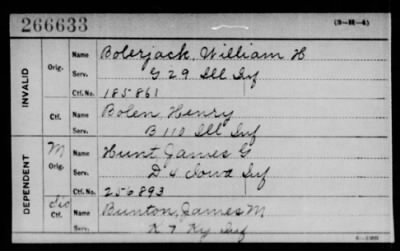 266633
(3-H-4)
INVALID
Orig. Name Bolerjack, William H
Serv. G 29 Ill Inf
Ctf. No. 185861
Ctf. Name Bolen, Henry
Serv. B 110 Ill Inf
DEPENDENT
M Orig. Name Hunt, James G
Serv. D 4 Iowa Inf
Ctf. No. 256893
Ctf. Name Bunton, James M
Serv. K 7 Ky Inf